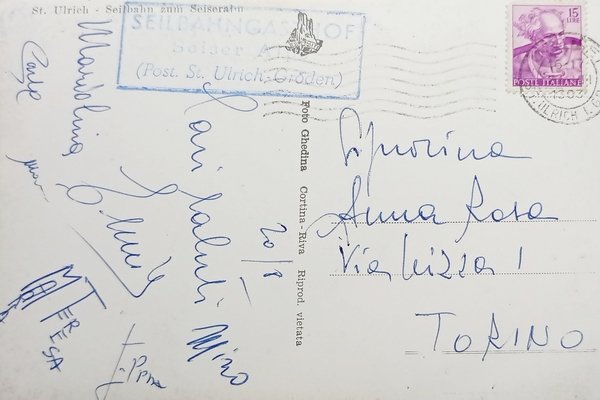 St. Ulrich - Seilbahn zum Seiseralm
SEILBAHNGASTHOF
Seiser Alm
(Post. St. Ulrich-Gröden)
15
LIRE
POSTE ITALIANE
Foto Ghedina Cortina - Riva Riprod. vietata
Mariolina
Cari saluti
20/8
Mino
MARIA TERESA
Signorina
Anna Rosa
Via Nizza 1
TORINO